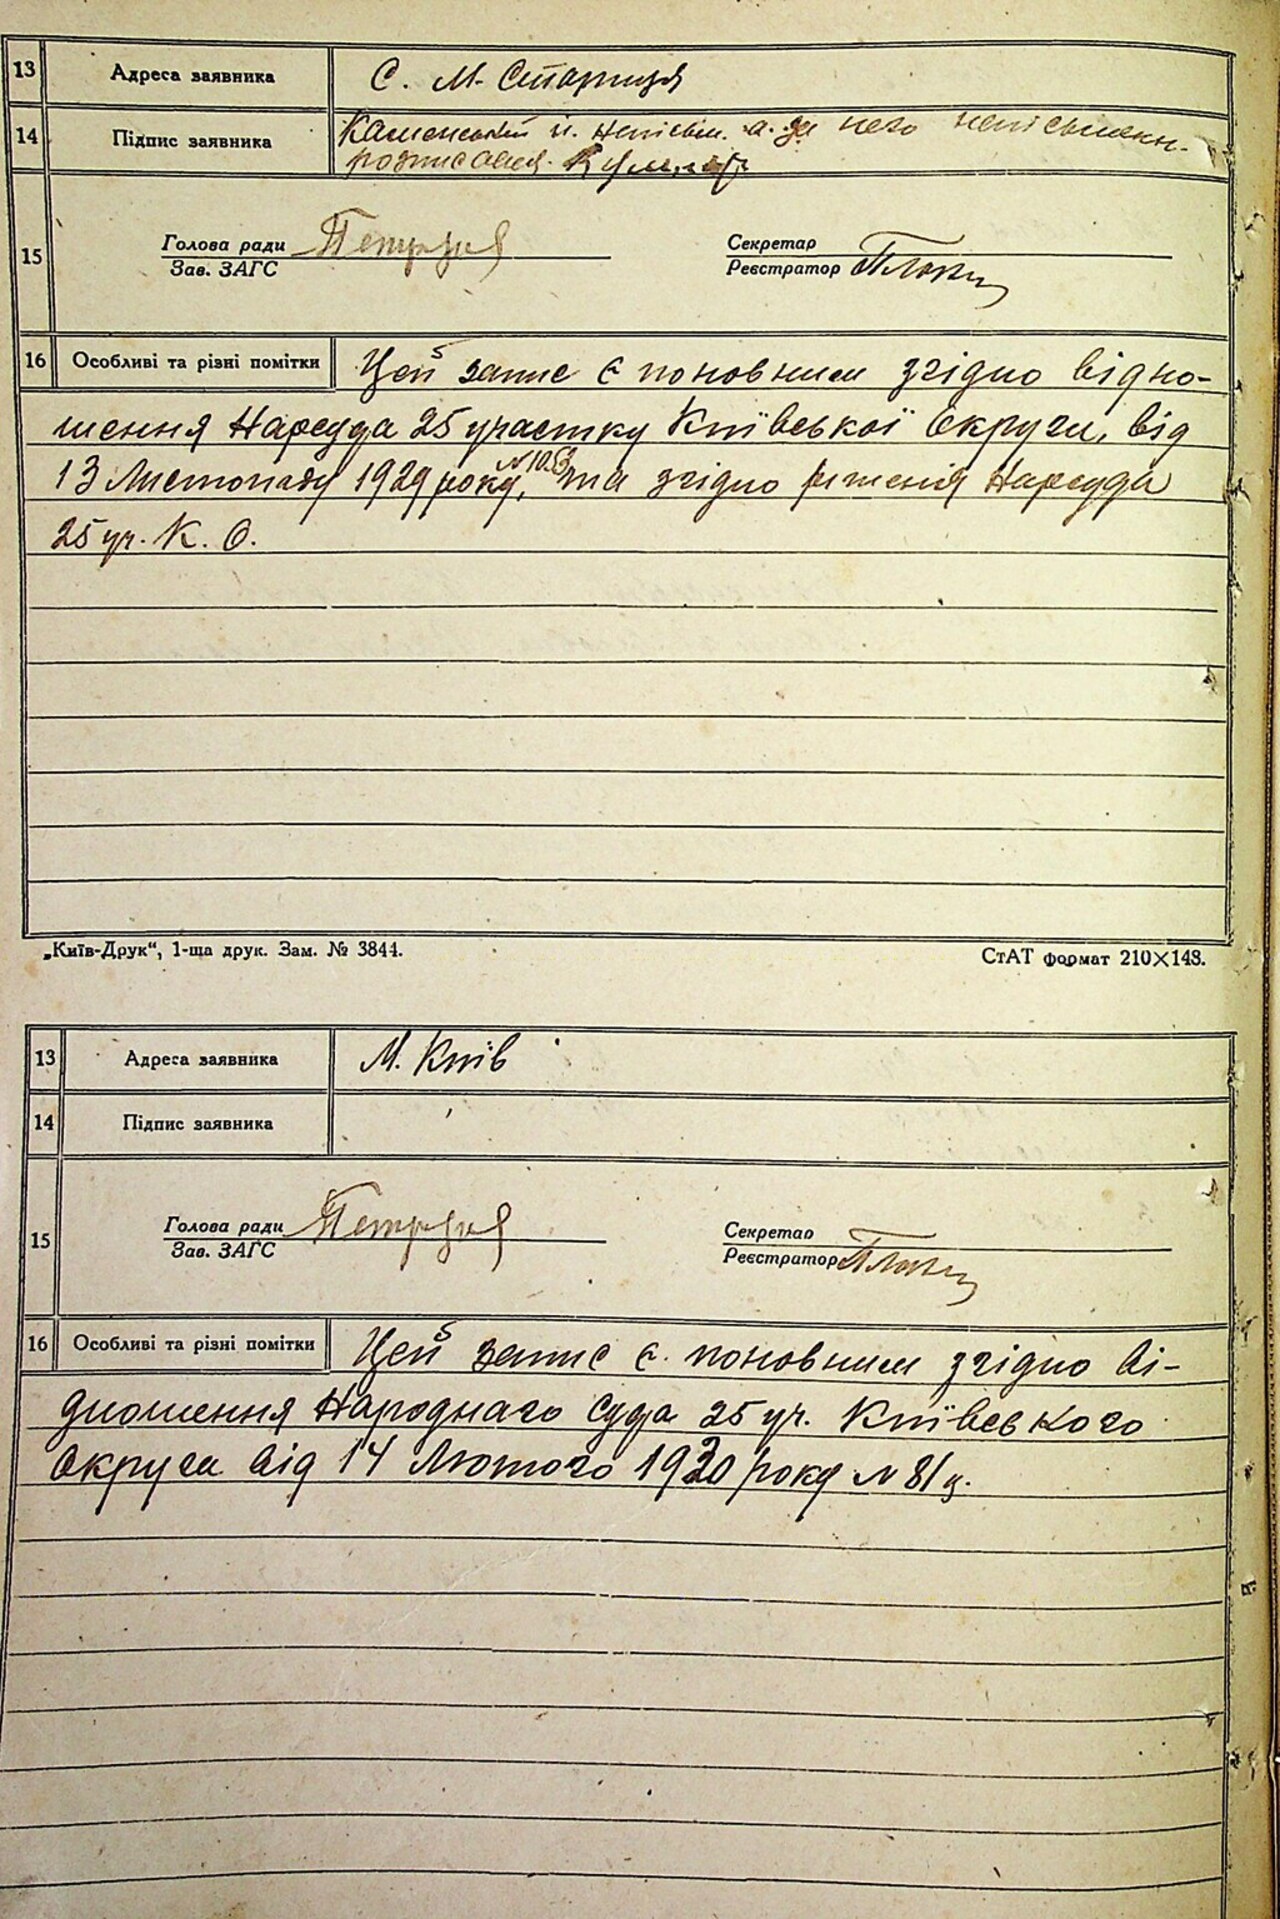 13 Адреса заявника С. М. Стариця
14 Підпис заявника Каменський н. непісьм. а. за него непісьменн.
розписался.
Голова ради Секретар
15 Зав. ЗАГС Реєстратор
16 Особливі та різні помітки Цей запис є поновним згідно відно-
шення Нарсуда 25 участку Київської Округи, від
13 Листопаду 1929 року, N 10.63 та згідно рішенія Нарсуда
25 уч. К. О.
„Київ-Друк“, 1-ша друк. Зам. № 3844. СтАТ формат 210×148.
13 Адреса заявника М. Київ
14 Підпис заявника
Голова ради Секретар
15 Зав. ЗАГС Реєстратор
16 Особливі та різні помітки Цей запис є. поновним згідно ві-
дношення Народнаго Суда 25 уч. Київського
Округа від 14 Лютого 1930 року N 81/ц.